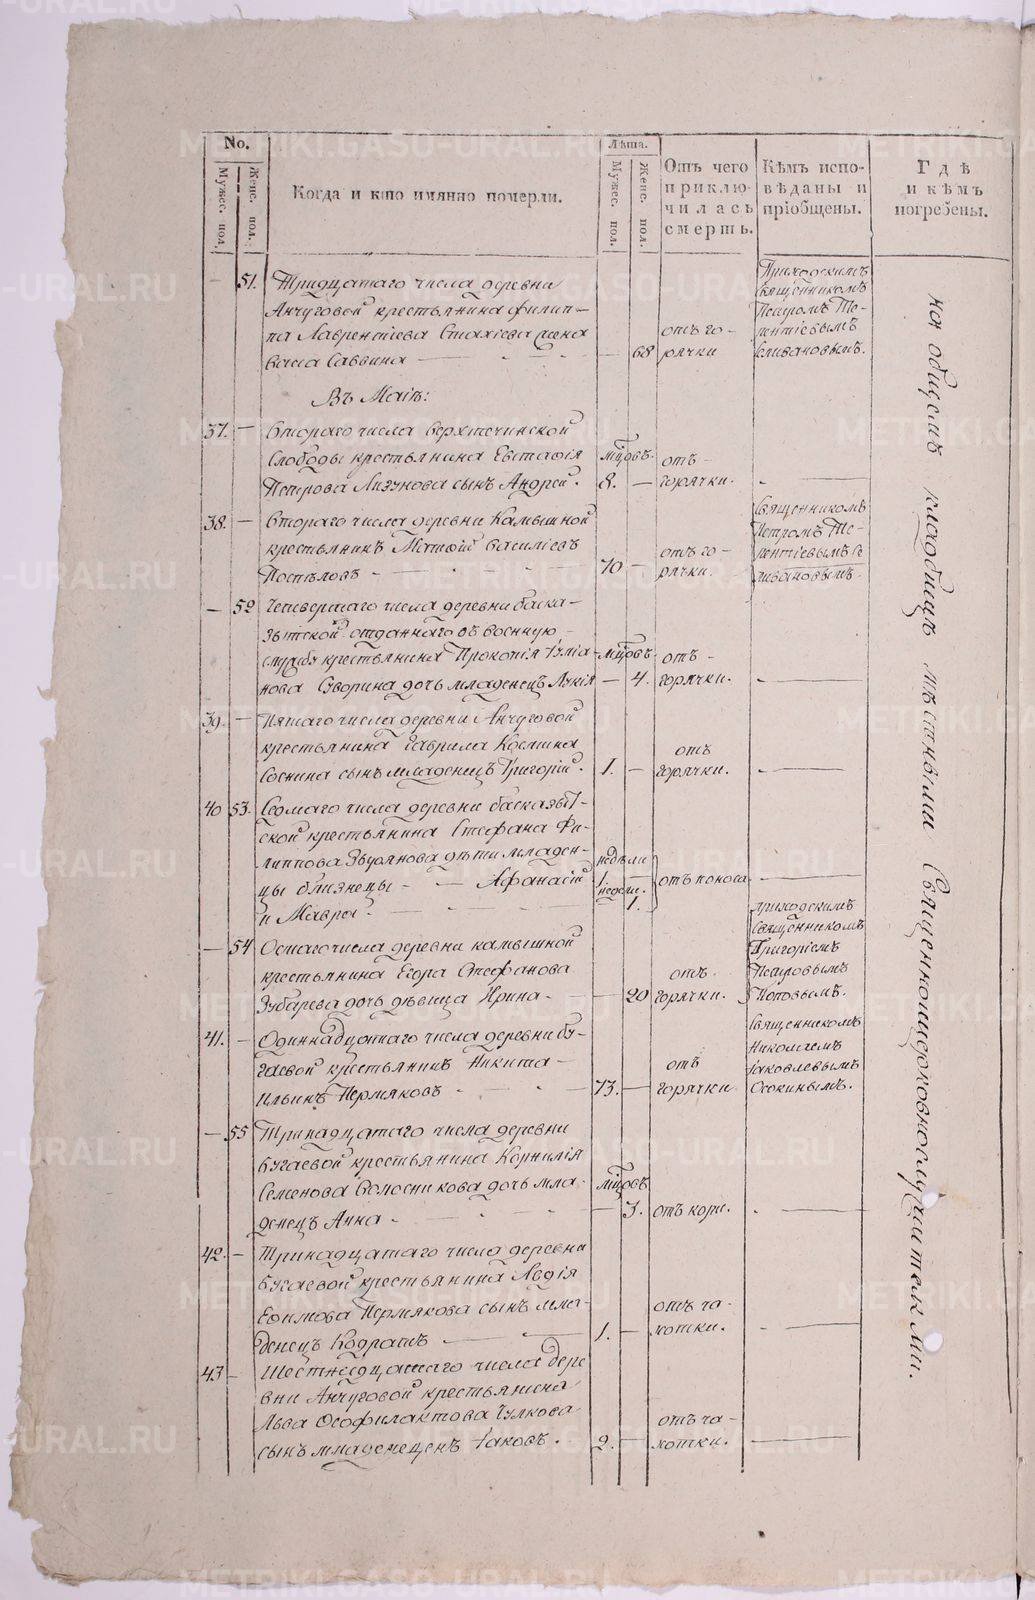 No.
Мужес. пол.
Женс. пол.
Когда и кто имянно померли.
Лѣта.
Мужес. пол.
Женс. пол.
Отъ чего
приклю-
чилась
смерть.
Кѣмъ испо-
вѣданы и
пріобщены.
Гдѣ
и кѣмъ
погребены.
— 51. Тридцатаго числа деревни
Анчуговой крестьянина Филип-
па Лаврентіева жена
Савина — 68
отъ го-
рячки
Приходскимъ
Священникомъ
Петромъ Те-
рентіевымъ
Селивановымъ.
Въ Маіѣ:
37. — Втораго числа Верхтечинской
Слободы крестьянина Евстафія
Петрова Лизунова сынъ Андрей.
мцовъ
8. —
отъ
горячки. —
38. — Втораго числа деревни Камышной
крестьянинъ Матѳій Василіевъ
Поспѣловъ — 70 —
отъ го-
рячки.
Священникомъ
Петромъ Те-
рентіевымъ Се-
ливановымъ.
— 52 Четвертаго числа деревни Баска-
зытской отданнаго въ военную
службу крестьянина Прокопія Іуліа-
нова Суворина дочь младенецъ Лукія
мцовъ
— 4.
отъ
горячки. —
39. — Пятаго числа деревни Анчуговой
крестьянина Гаврила Космина
Соснина сынъ младенецъ Григорій. 1. —
отъ
горячки. —
40 53. Седмаго числа деревни Басказыт-
ской крестьянина Стефана Фи-
липпова дѣти младен-
цы близнецы — Афанасій
и Мавра.
недѣли
1. —
недѣли.
1.
отъ поноса —
— 54 Осмаго числа деревни Камышной
крестьянина Егора Стефанова
Зубарева дочь дѣвица Ирина. — 20
отъ
горячки.
приходскимъ
Священникомъ
Григоріемъ
Петровымъ
Поповымъ.
41. — Одиннадцатаго числа деревни Бу-
гаевой крестьянинъ Никита
Ильинъ Пермяковъ 73. —
отъ
горячки
Священникомъ
Николаемъ
Іаковлевымъ
Осокинымъ.
— 55 Тринадцатаго числа деревни
Бугаевой крестьянина Корнилія
Семенова Волосникова дочь мла-
денецъ Анна.
мцовъ
— 3.
отъ кори. —
42. — Тринадцатаго числа деревни
Бугаевой крестьянина
Ефимова Пермякова сынъ мла-
денецъ Кодратъ — 1. —
отъ ча-
хотки. —
43 — Шестнадцатаго числа дере
вни Анчуговой крестьянина
Льва Ѳеофилактова Чулкова
сынъ младенецъ Іаковъ. 2. —
отъ ча-
хотки. —
на общемъ кладбищѣ мѣстными Священноцерковнослужителями.
METRIKI.GASO-URAL.RU